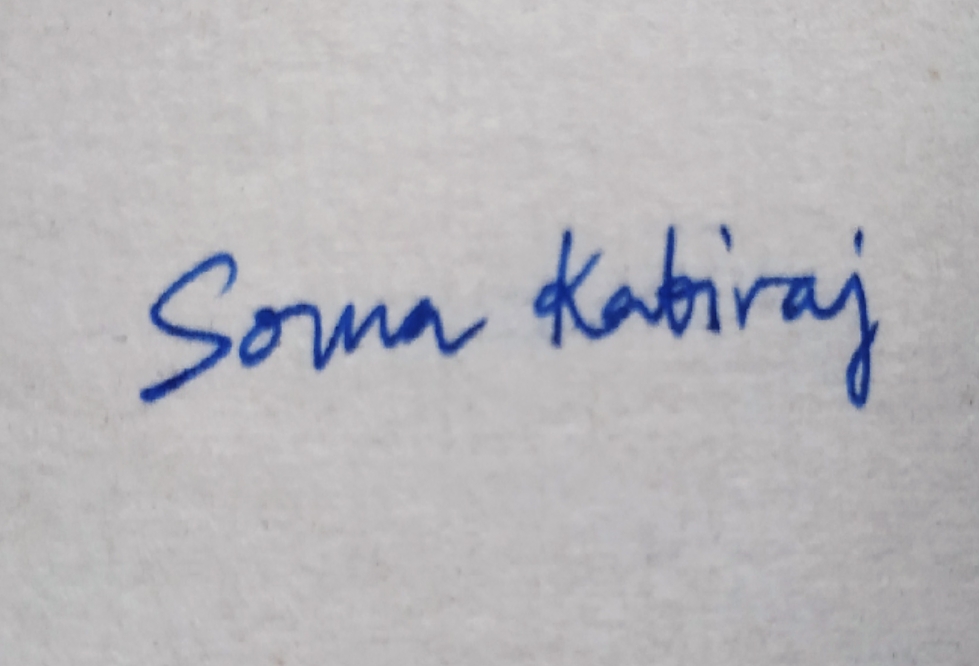 Soma Kabiraj